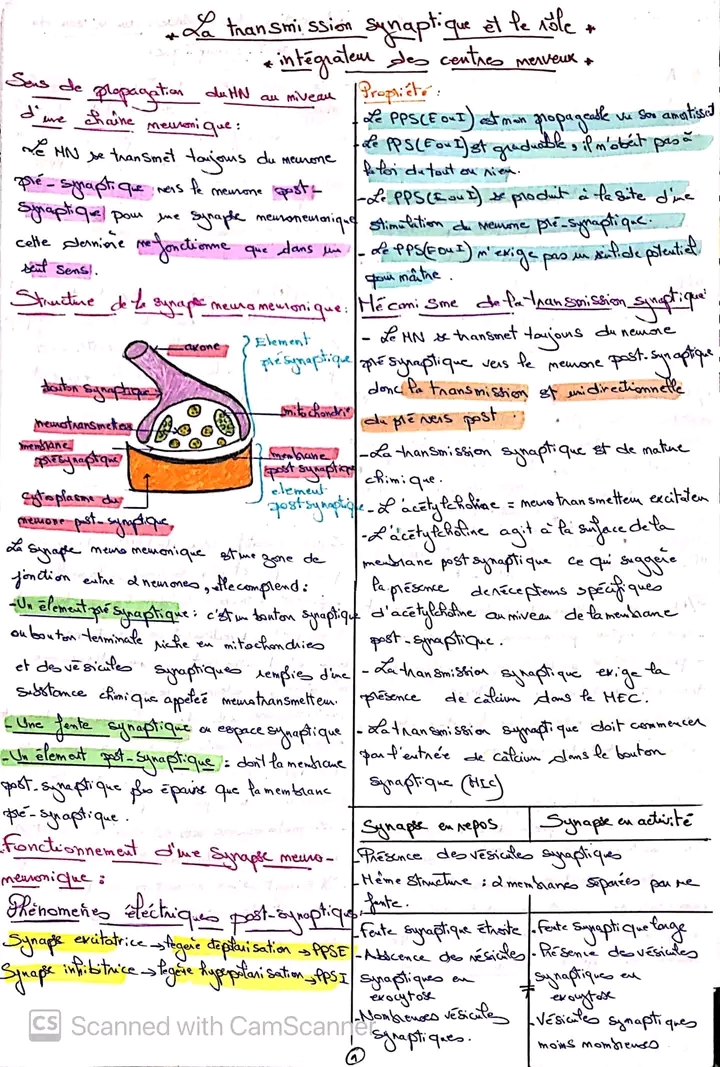 La transmission synaptique et le rôle
intégrateur des centres nerveux
Sens de propagation du HN au niveau
d'une chaîne neuronique :
Le HN se transmet toujours du neurone
pré-synaptique vers le neurone post-
synaptique pour une synapse neuroneuronique
cette dernière ne fonctionne que dans un
seul sens.
Structure de la synapse neuro neuronique :
axone
Element
présynaptique
bouton synaptique
mitochondri
neurotransmetteur
membrane
présynaptique
membrane
post synaptique
element
postsynaptique
cytoplasme du
neurone post-synaptique
La synapse neuro neuronique est une zone de
jonction entre 2 neurones, elle comprend :
-Un élement pré synaptique : c'est un bouton synaptique
ou bouton terminale riche en mitochondries
et des vésicules synaptiques remplies d'une
substance chimique appelée neurotransmetteur.
- Une fente synaptique ou espace synaptique
-Un élement post-synaptique : dont la membrane
post-synaptique plus épaisse que la membrane
pré-synaptique.
Fonctionnement d'une synapse neuro-
neuronique :
Phénomenes électriques post-synaptiques
Synapse excitatrice → legère depolarisation → PPSE
Synapse inhibitrice → legère hyperpolarisation → PPSI
Propriété :
- Le PPS(E ou I) est non propageable vu son amortissement
- Le PPS(E ou I) est graduable, il n'obéit pas à
la loi du tout ou rien.
- Le PPS(E ou I) se produit à la site d'une
stimulation du neurone pré-synaptique.
- Le PPS(E ou I) n'exige pas un seuil de potentiel
pour naître.
Mécanisme de la transmission synaptique
- Le HN se transmet toujours du neurone
présynaptique vers le neurone post-synaptique
donc la transmission est unidirectionnelle
du pré vers post.
-La transmission synaptique est de nature
chimique.
-L'acétylcholine = neurotransmetteur excitateur
-L'acétylcholine agit à la surface de la
membrane post synaptique ce qui suggère
la présence de récepteurs spécifiques
d'acétylcholine au niveau de la membrane
post-synaptique.
- La transmission synaptique exige la
présence de calcium dans le MEC.
- La transmission synaptique doit commencer
par l'entrée de calcium dans le bouton
synaptique (MIC)
Synapse en repos | Synapse en activité
-Présence des vésicules synaptiques
-Même structure : 2 membranes séparées par une
fente.
-Fente synaptique étroite | -Fente synaptique large
-Abscence des vésicules | -Présence des vésicules
synaptiques en | synaptiques en
exocytose | exocytose
-Nombreuses vésicules | -Vésicules synaptiques
synaptiques. | moins nombreuses
CS Scanned with CamScanner
1